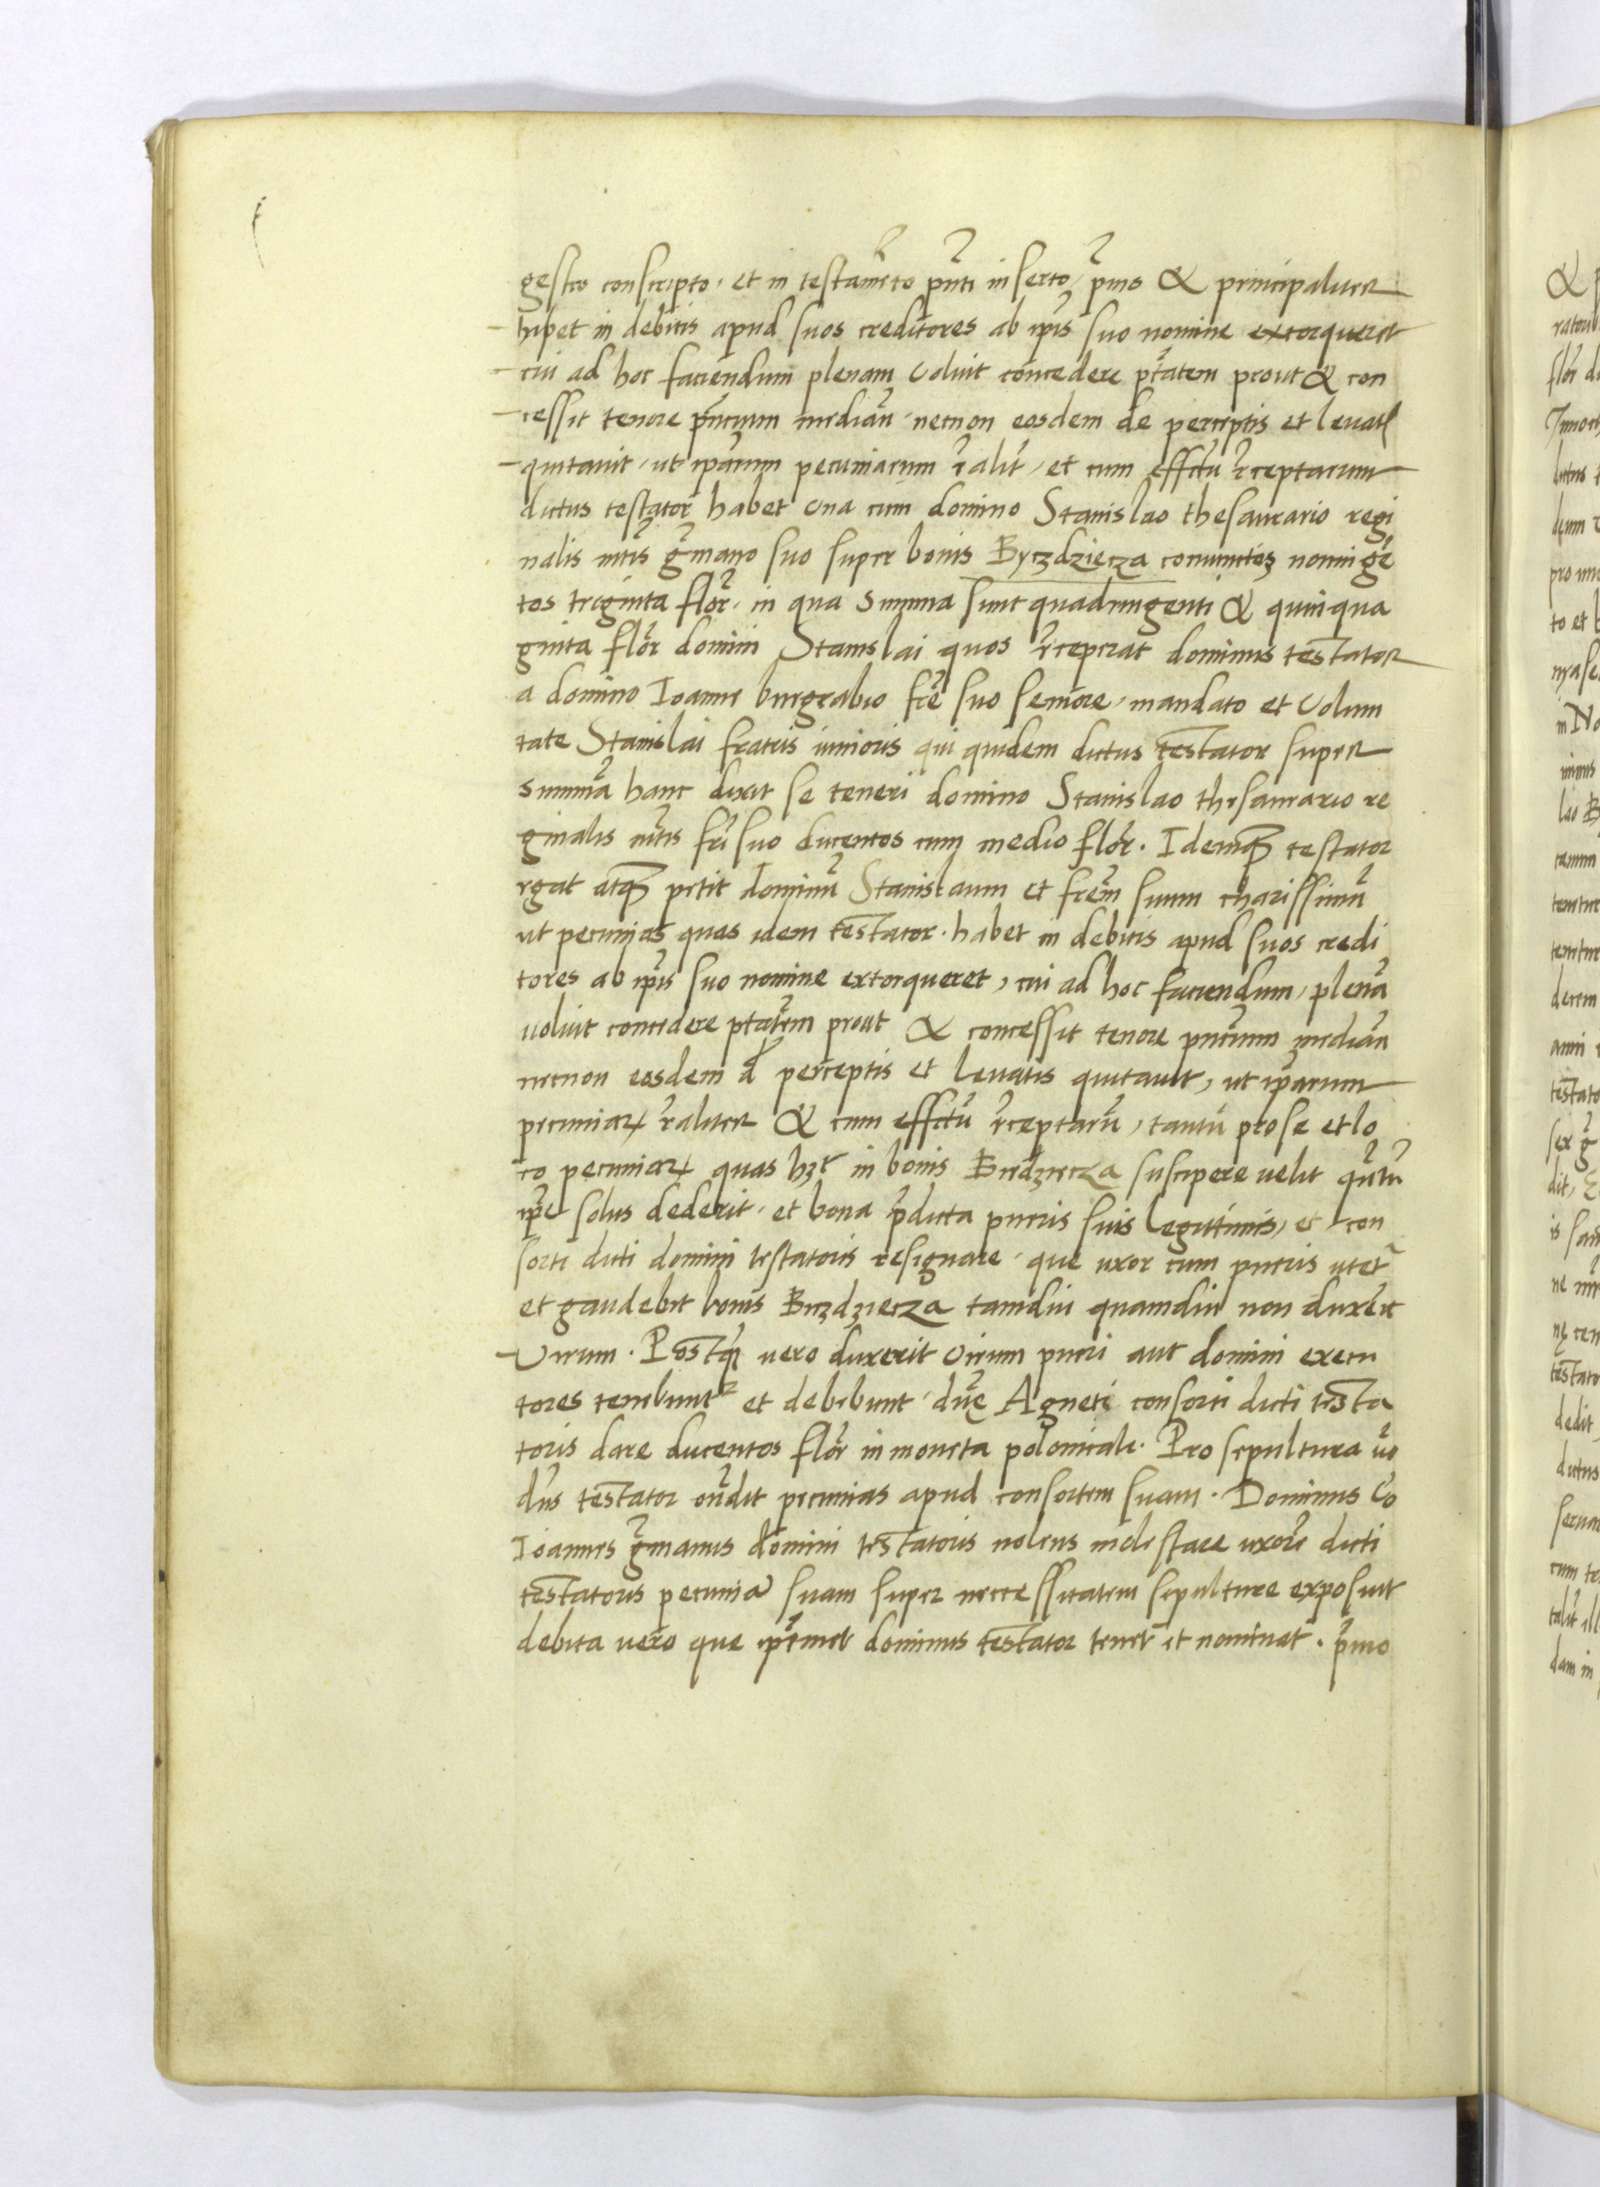 gestro conscripto, et in testamẽto pñti inserto, pmo & principaliter
hibet in debitis apud suos creditores ab ipis suo nomine extorqueret
cui ad hoc faciendum plenam voluit concedere ptatem prout & con
cessit tenore pñcium mediãn, necnon eosdem de perceptis et levatis
quitavit, ut iparum pecuniarum raliter, et cum effectu receptarum
dictus testator habet una cum domino Stanislao thesaurario regi
nalis mtis gmano suo super bonis Byczdziecza coniunctos noningẽ
tos triginta flor. in qua summa sunt quadringenti & quinqua
ginta flor domini Stanislai quos receperat dominus testator
a domino Ioanne burgrabio fre suo seniore, mandato et volun
tate Stanislai fratris iunioris qui quidem dictus testator super
summã hanc dixit se teneri domino Stanislao thesaurario re
ginalis mtis fri suo ducentos cum medio flor. Idemq testator
rgat atq petit dominũ Stanislaum et frem suum charissimũ
ut pecunias quas idem testator habet in debitis apud suos credi
tores ab ipis suo nomine extorqueret, cui ad hoc faciendum, plenã
voluit concedere ptatem prout & concessit tenore pñtium mediãn
necnon eosdem d perceptis et levatis quitavit, ut iparum
pecuniar raliter & cum effectu receptarũ, tantũ pro se et lo
co pecuniar quas hzt in bonis Biedziecza suscipere velit qñtũ
ipe solus dederit, et bona pdicta pueris suis legittimis, et con
sorti dicti domini testatoris resignare, que uxor cum pueris utet
et gaudebit bonis Biczdziecza tamdiu quamdiu non duxerit
virum. Postq vero duxerit virum pueri aut domini execu
tores tenebunt et debebunt, dnę Agneti consorti dicti testa
toris dare ducentos flor in moneta polonicali. Pro sepultura vo
dns testator ondit pecunias apud consortem suam. Dominus vo
Ioannes gmanus domini testatoris nolens molestare uxorẽ dicti
testatoris pecuniã suam super necessitatem sepulture exposuit
debita vero que ipemet dominus testator tenet et nominat. pmo